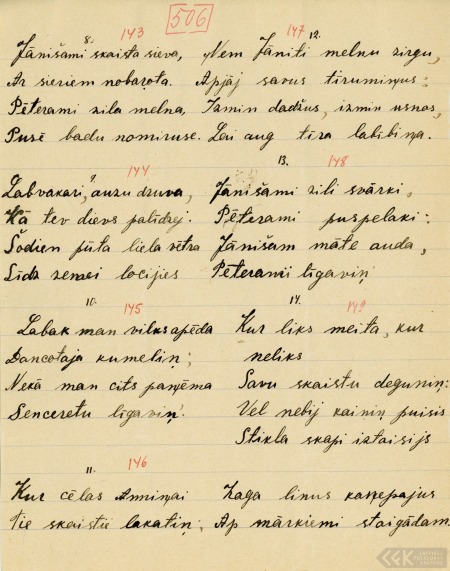 506
8. 143
Jānišami skaista sieva,
Ar sieriem nobaŗota.
Pēterami zila melna,
Pusē badu nomiruse.
9. 144
Labvakari, auzu druva,
Kā tev dievs palīdzej
Šodien pūta liela vētra
Līdz zemei locijies
10. 145
Labak man vilks apēda
Dancotaja kumeliņ;
Nekā man cits paņēma
Senceretu līgaviņ.
11. 146
Kur cēlas Anniņai
Tie skaistie lakatiņ;
Zaga linus kaņepajus
Ap mārkiemi staigādam.
12. 147
Nem Jāniti melnu zirgu,
Apjāj savus tirumiņus:
Izmin dadžus, izmin usnas,
Lai aug tira labibiņa.
13. 148
Jānišami zili svārki,
Pēterami puspelaki:
Jānišam māte auda,
Pēterami līgaviņ
14. 149
Kur liks meita, kur
neliks
Savu skaistu deguniņ:
Vel nebij kainiņ puisis
Stikla skapi iztaisijs